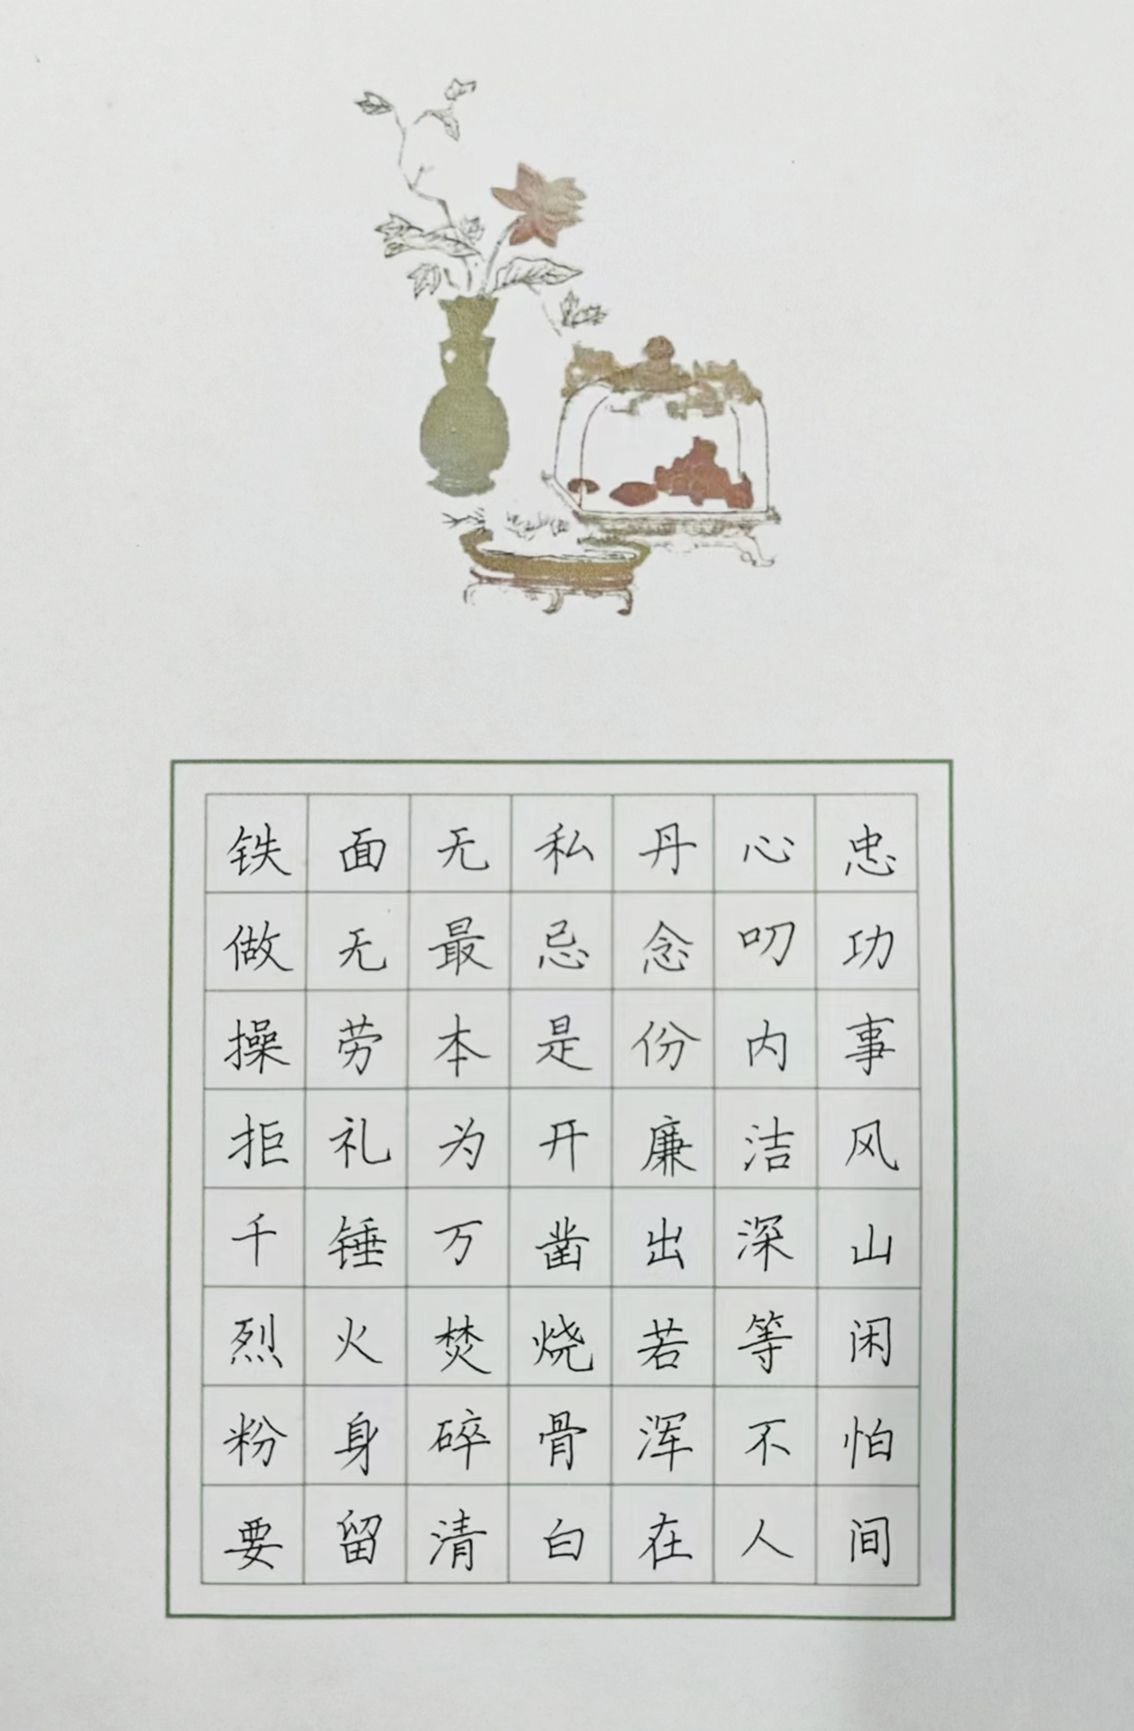 铁面无私丹心忠
做无最忌念叨功
操劳本是份内事
拒礼为开廉洁风
千锤万凿出深山
烈火焚烧若等闲
粉身碎骨浑不怕
要留清白在人间